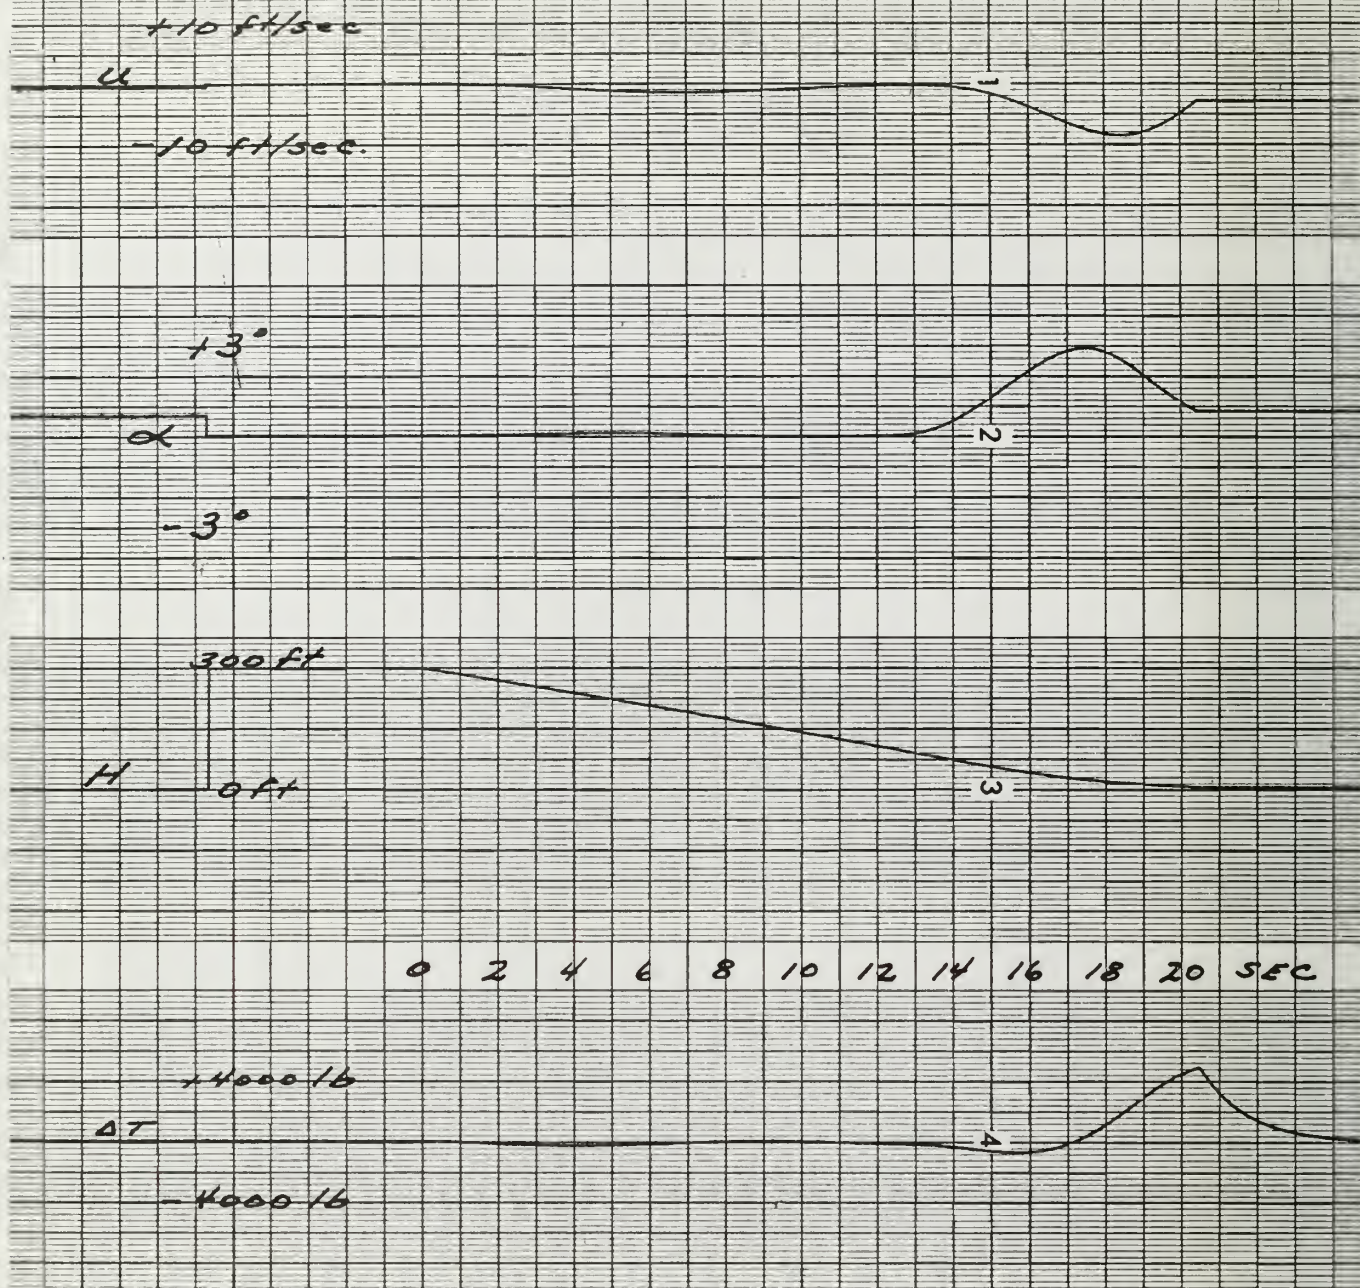 +10 ft/sec
u
1
-10 ft/sec.
+3°
α
2
-3°
300 ft
H
0 ft
3
0 2 4 6 8 10 12 14 16 18 20 SEC
+4000 lb
ΔT
4
-4000 lb